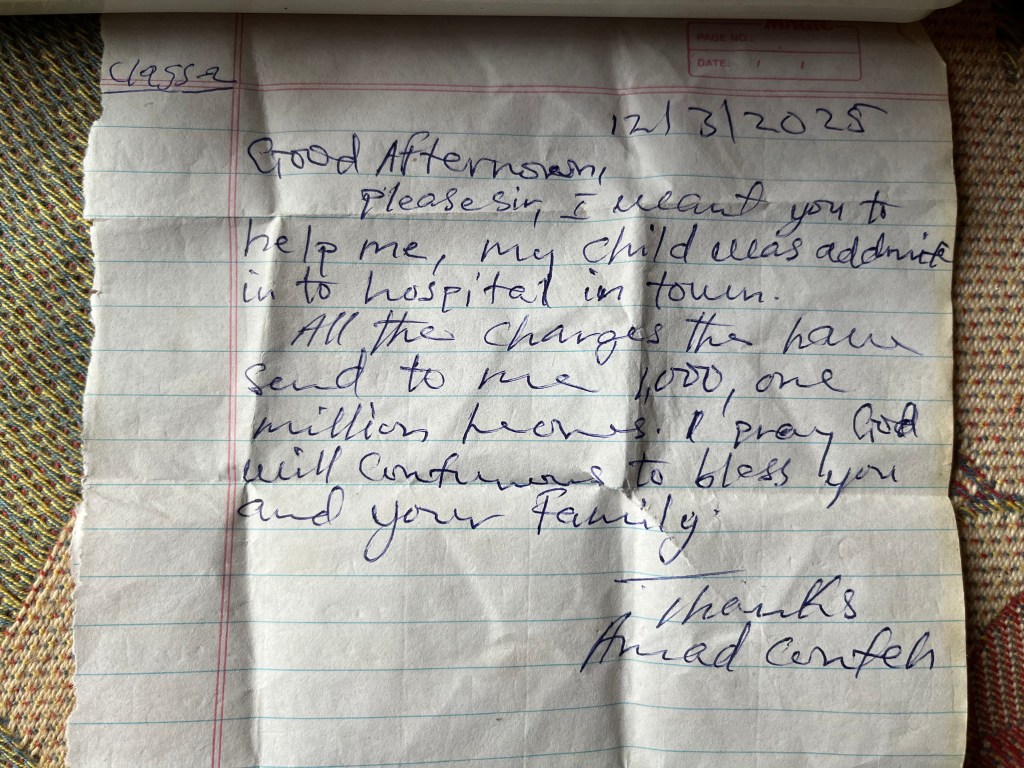 PAGE NO.:
DATE: / /
classa
12/3/2025
Good Afternown,
please sir, I want you to
help me, my child was addmite
in to hospital in town.
All the charges the have
send to me 1,000, one
million leones. I pray God
will Continuous to bless you
and your Family.
Thanks
Amad Conteh